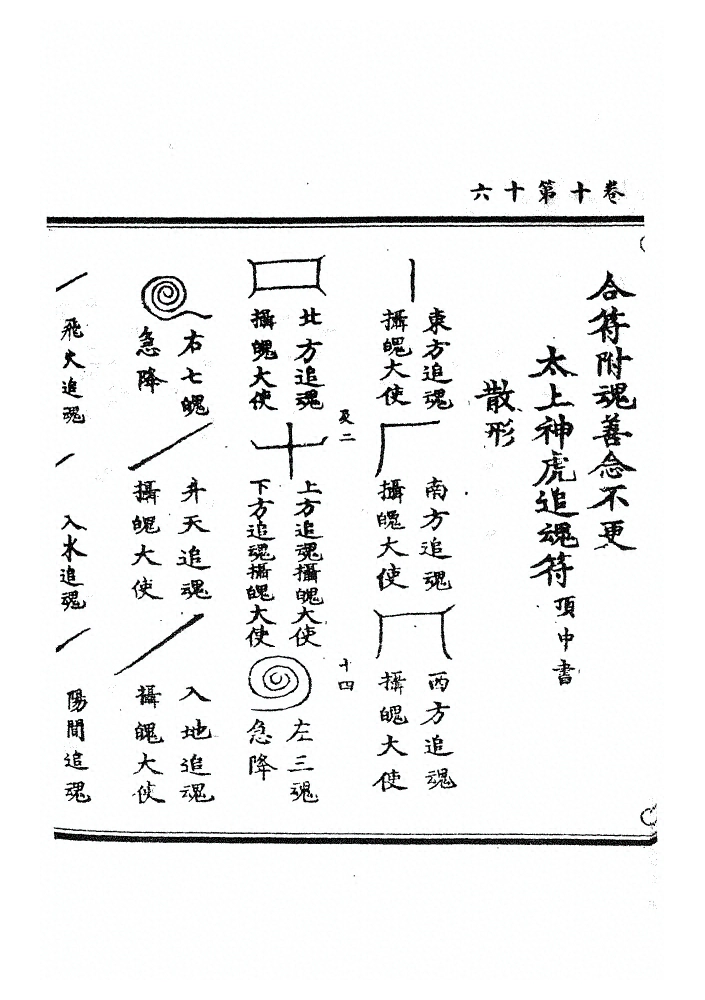 卷十第十六
合符附魂善念不更
太上神虎追魂符頂中書
散形
東方追魂
攝魄大使
南方追魂
攝魄大使
西方追魂
攝魄大使
及二
十四
北方追魂
攝魄大使
上方追魂攝魄大使
下方追魂攝魄大使
左三魂
急降
右七魄
急降
升天追魂
攝魄大使
入地追魂
攝魄大使
飛火追魂
入水追魂
陽間追魂